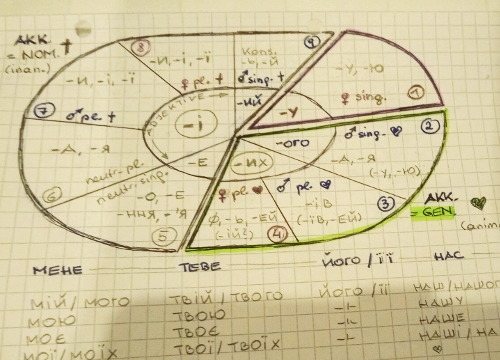 АКК. †
= NOM.
(inan.)
8
-и, -і, -ї
♀ pl. †
-и, -і, -ї
9
Kons.
-ь, -й
♂ sing. †
-ий
-у, -ю
♀ sing.
1
-у
7
♂ pl. †
ADJEKTIVE →
-і
-а, -я
neutr. pl.
neutr. sing.
-е
6
-о, -е
-ння, -'я
5
-их
-ого
♂ sing. ♥
2
-а, -я
(-у, -ю)
3
♀ pl. ♥
♂ pl. ♥
-ів
(-їв, -ей)
ø, -ь, -ей
4
АКК.
= GEN. ♥
МЕНЕ
ТЕБЕ
ЙОГО / ЇЇ
НАС
МІЙ / МОГО
ТВІЙ / ТВОГО
ЙОГО / ЇЇ
МОЮ
ТВОЮ
-"-
НАШУ
МОЄ
ТВОЄ
-"-
НАШЕ
МОЇ / МОЇХ
ТВОЇ / ТВОЇХ
-"-